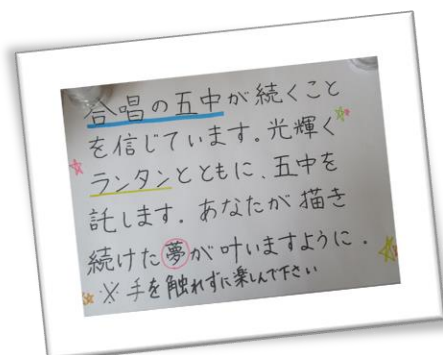 合唱の五中が続くこと
を信じています。光輝く
ランタンとともに、五中を
託します。あなたが描き
続けた夢が叶いますように。
※手を触れずに楽しんで下さい